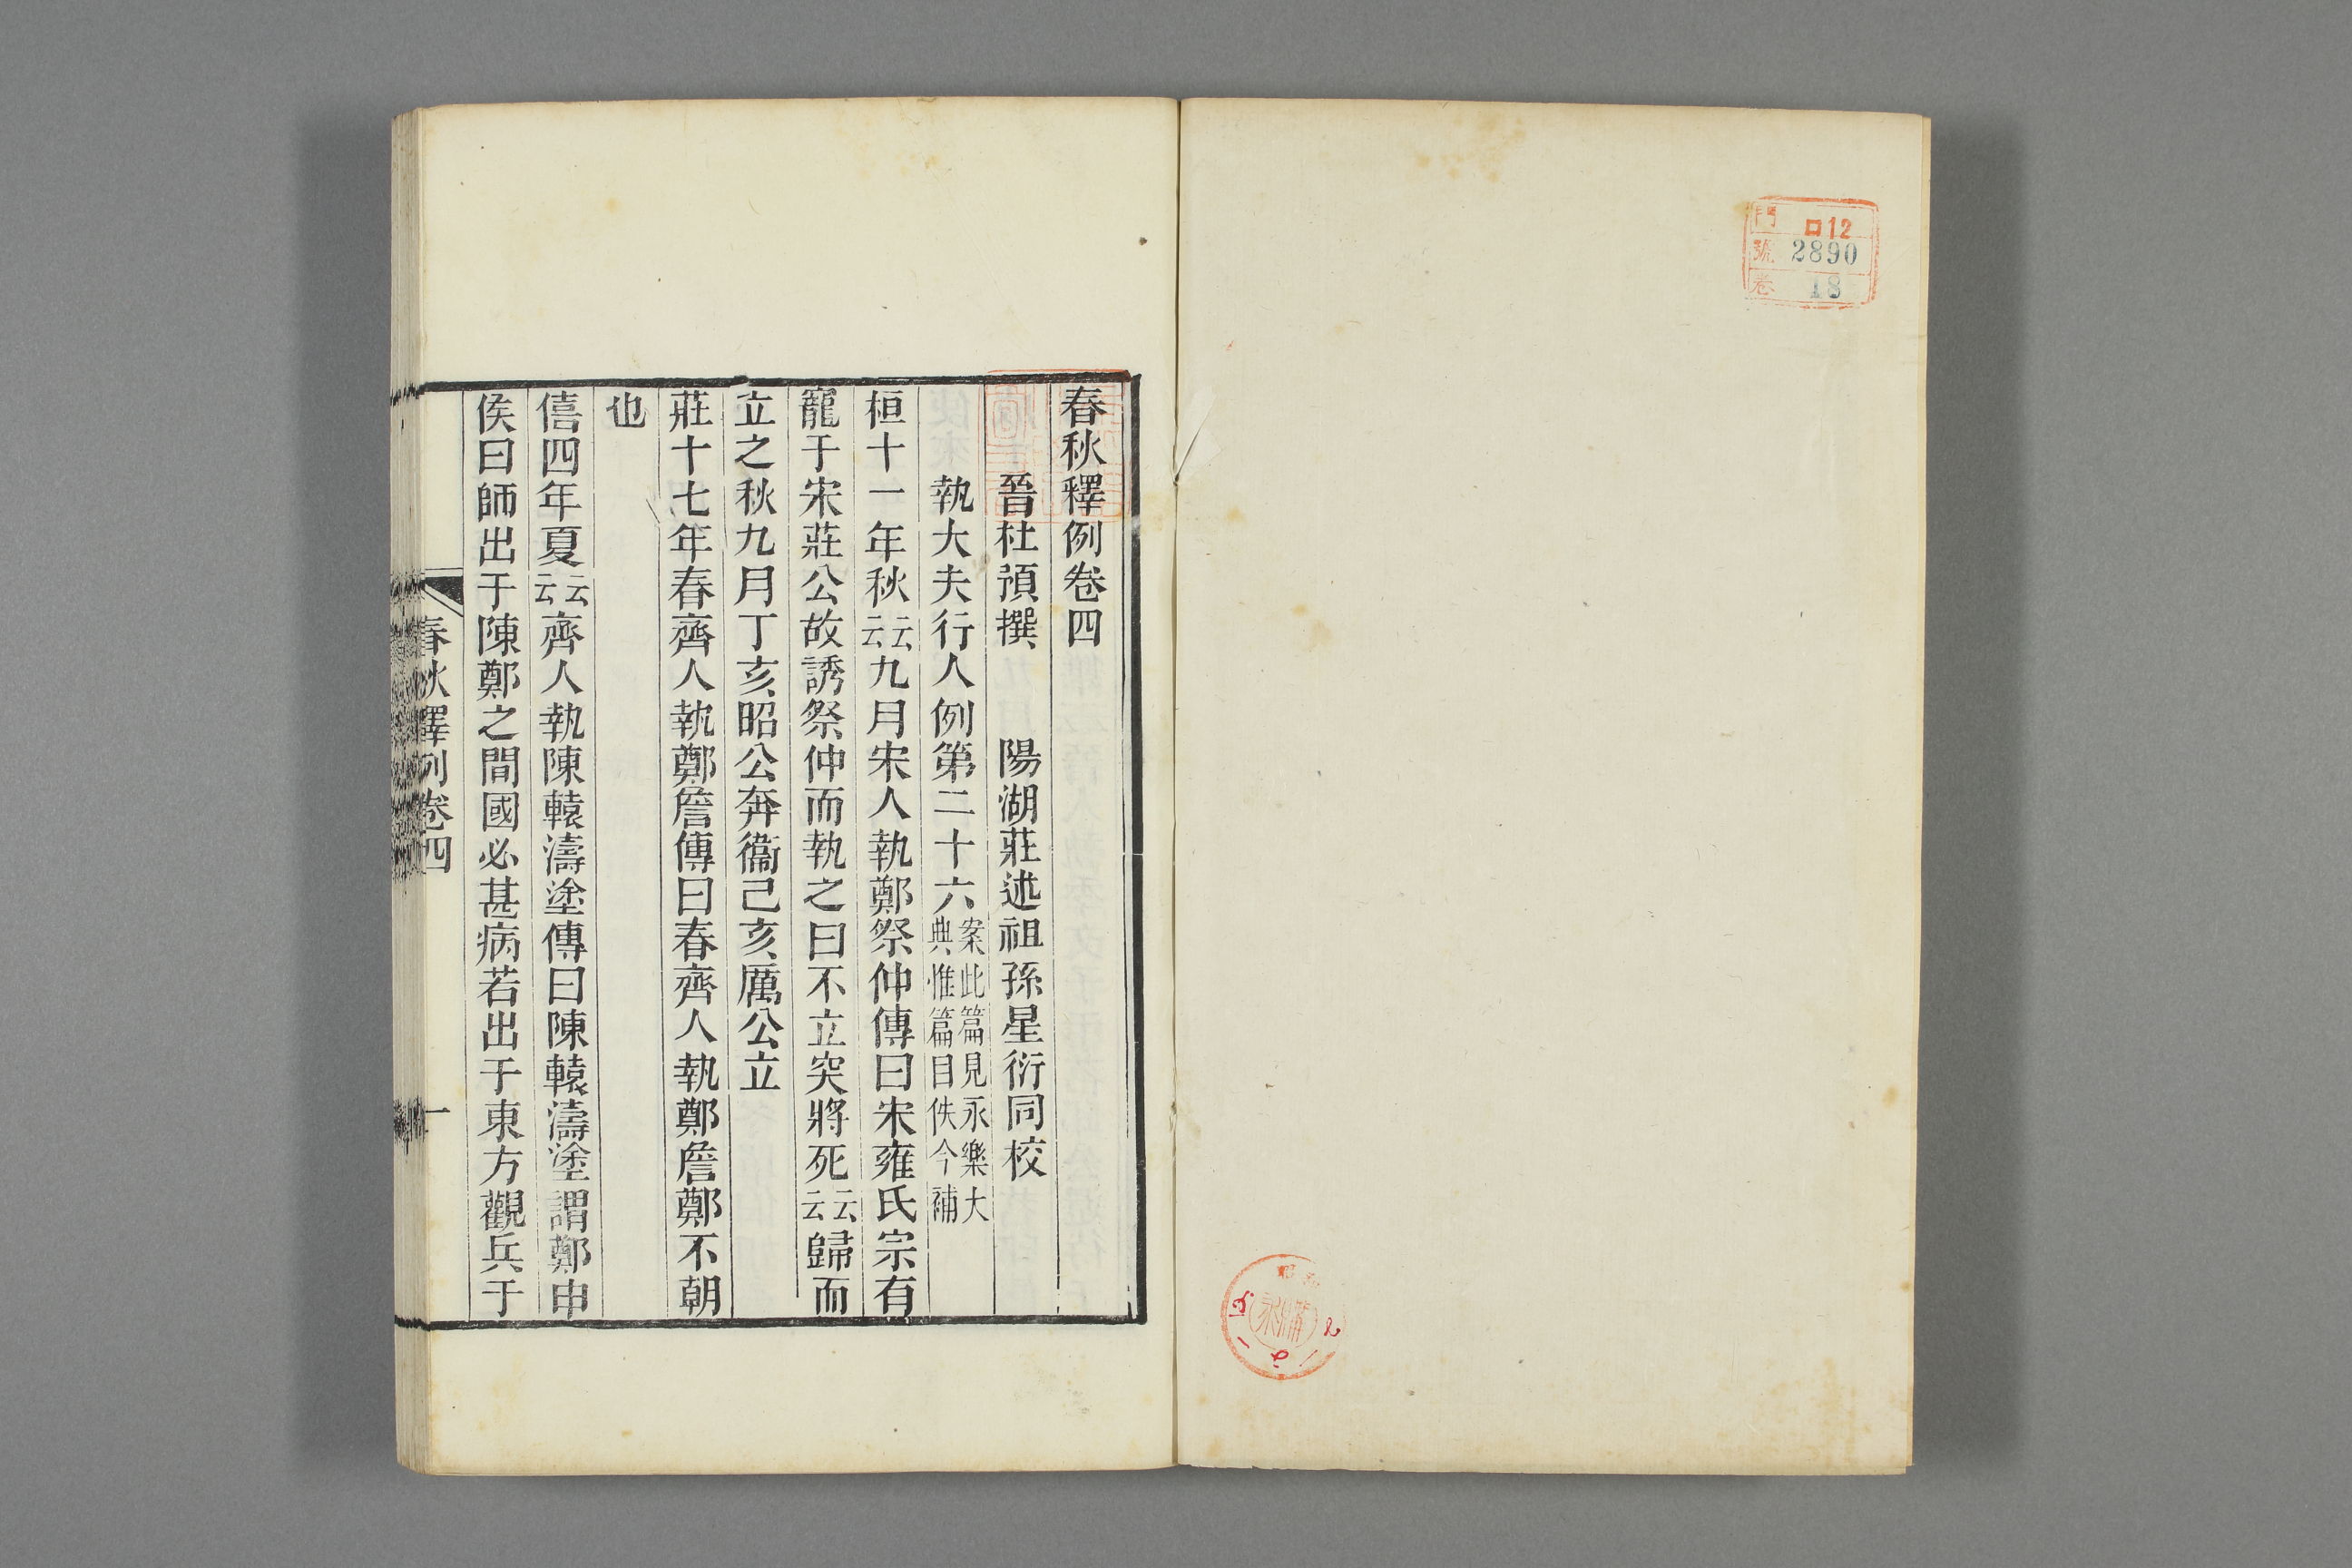 門 口12
號 2890
卷 18
春秋釋例卷四
晉杜預撰 陽湖莊述祖孫星衍同校
執大夫行人例第二十六案此篇見永樂大典惟篇目佚今補
桓十一年秋云云九月宋人執鄭祭仲傳曰宋雍氏宗有
寵于宋莊公故誘祭仲而執之曰不立突將死云云歸而
立之秋九月丁亥昭公奔衞己亥厲公立
莊十七年春齊人執鄭詹傳曰春齊人執鄭詹鄭不朝
也
僖四年夏云云齊人執陳轅濤塗傳曰陳轅濤塗謂鄭申
侯曰師出于陳鄭之間國必甚病若出于東方觀兵于
春秋釋例卷四
一